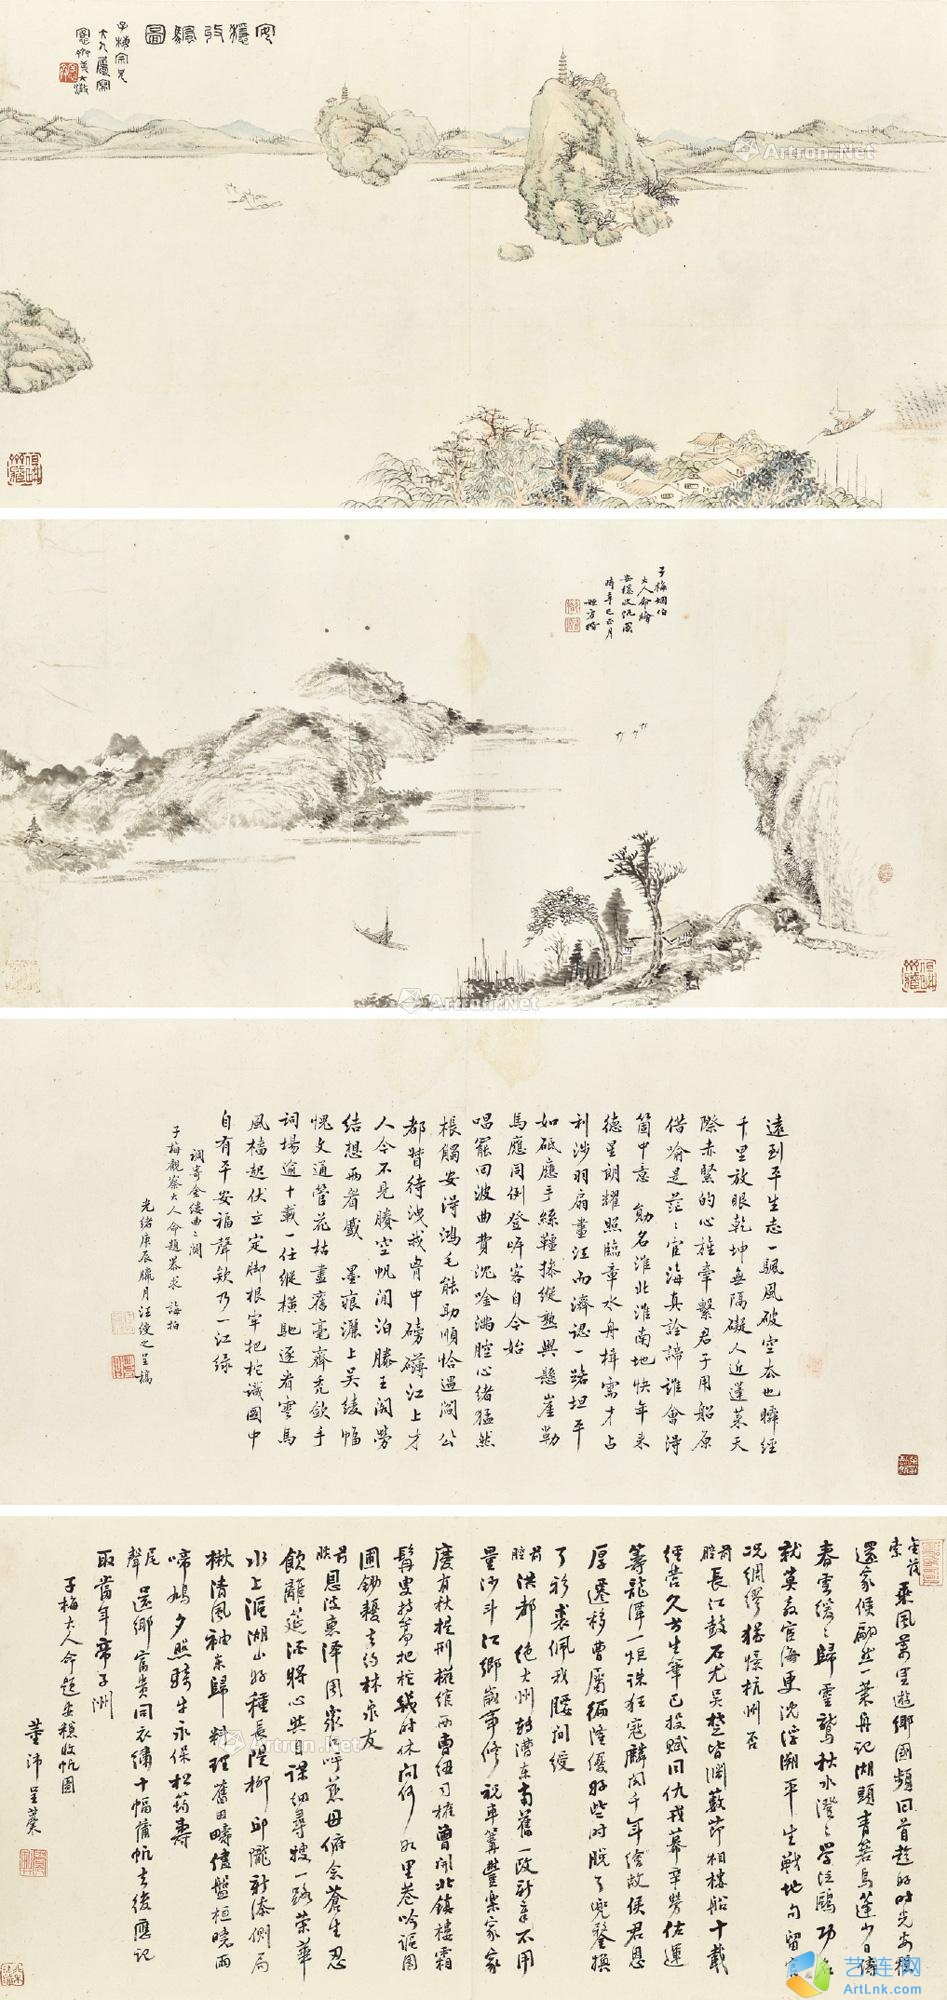 安穩收帆圖
子梅宗兄
大人屬寫
Artron.Net
子梅姻伯
大人命繪
安穩收帆圖
時辛巳正月
Artron.Net
遠到平生志一颿風破空奔也瞬經
千里放眼乾坤無隔礙人近蓬萊天
際赤緊的心旌牽繫君子用船原
借喻是茫茫宦海真詮諦誰會得
箇中意 勛名淮北淮南地快年來
德星朗耀照臨章水舟楫需才占
利涉羽扇畫江而濟認一路坦平
如砥應手絲韁操縱熟與懸崖勒
馬應同例登岸客自今始
唱罷回波曲費沈吟滿腔心緒猛然
棖觸安得鴻毛能助順恰過閻公
都督待洩我胷中磅礴江上才
人今不見賸空帆閒泊滕王閣勞
結想兩眉蹙 墨痕灑上吳綾幅
愧文通管花枯盡舊毫齊禿歛手
詞場逾十載一任縱橫馳逐看雲馬
風檣起伏立定腳根牢把柁識圖中
自有平安福聲欸乃一江綠
調寄金縷曲二闋
子梅觀察大人命題恭求 誨拍
光緒庚辰臘月汪綬之呈稿
乘風萬里遊鄉國頻回首趁好時光安穩
還家候翩然一葉舟記湖頭青箬烏蓬少日儔
春雲緩緩歸靈鷲秋水澄澄學泛鷗功名
就莫教宦海更沈浮溯平生戰地句留官
況綢繆猶憬杭州否
前腔長江鼓石尤吳楚皆淵藪節相樓船十載
經營久書生筆已投賦同仇我幕辛勞佐運
籌龍潭一炬誅狂寇麟閣千年繪故侯君恩
厚遷移曹屬徧陞優好些時脫了兜鍪換
了衫裘佩我腰間綬
前腔洪都絕大州轉漕東南舊一政新章不用
量沙斗江鄉歲事修祝車篝豐樂家家
慶有秋提刑權綰西曹紐司榷曾開北鎮樓霜
髯叟持籌把柁幾時休問何如里巷吟謳園
圃鋤耰去約林泉友
前腔恩波惠澤周眾民呼慈母俯念蒼生忍
飲離筵酒將心與自謀細尋搜一路榮華
水上漚湖山好種長隄柳邱隴新添側局
楸清風袖東歸料理舊田疇儘盤桓曉雨
啼鳩夕照騎牛永保松筠壽
尾聲 還鄉富貴同衣繡十幅蒲帆去後應記
取當年帝子洲
子梅大人命題安穩收帆圖
董沛呈藁
艺连网
ArtLink.com